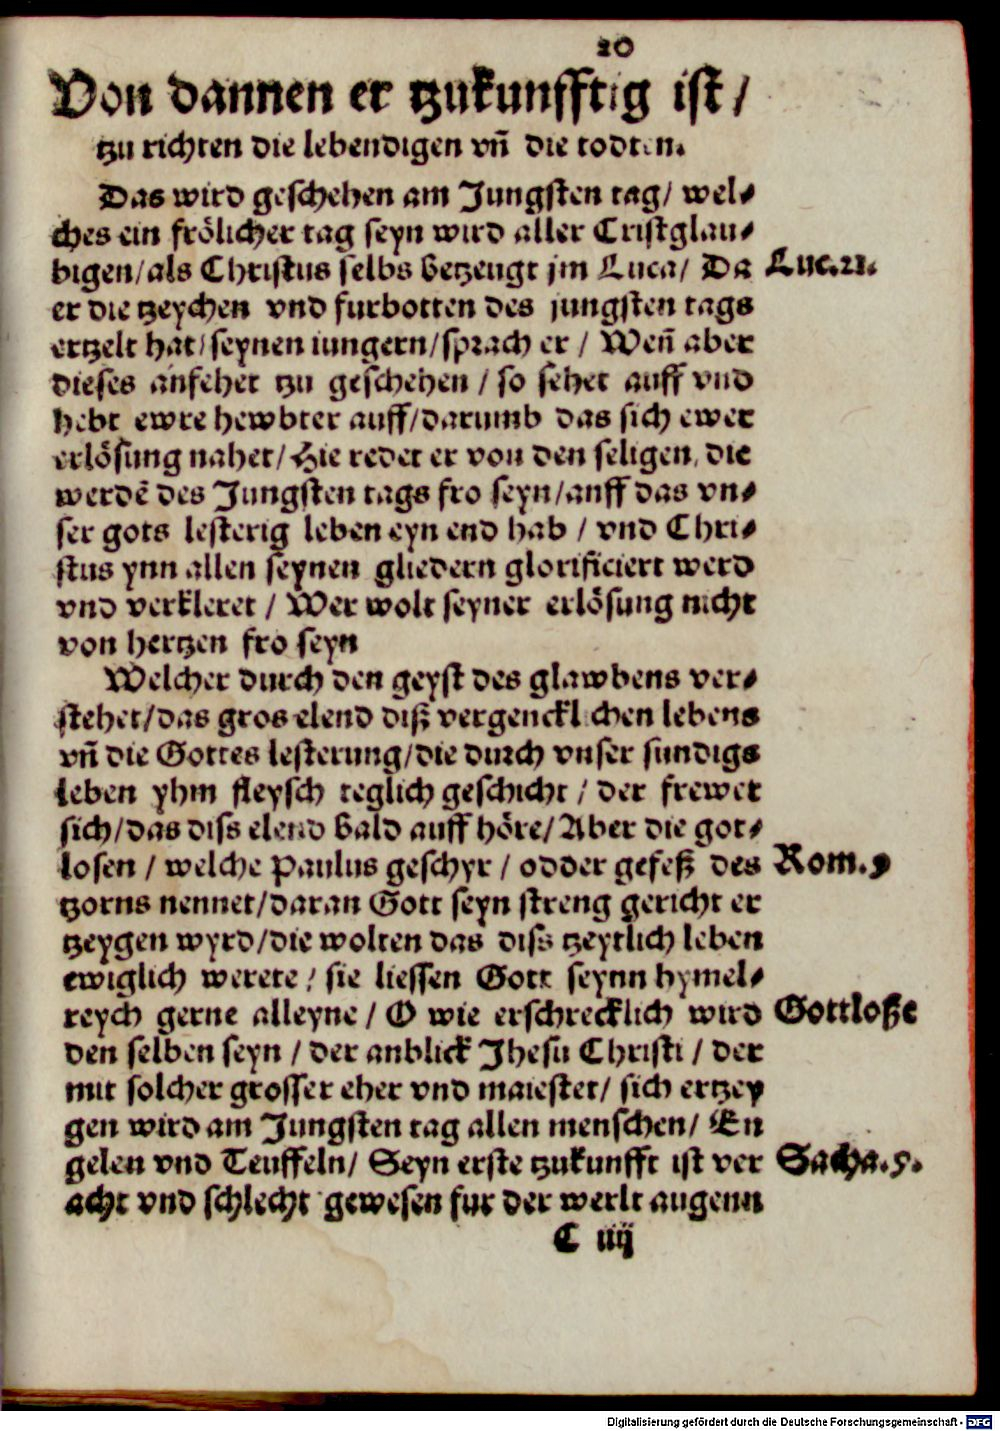 20
Von dannen er tzukunfftig ist /
tzu richten die lebendigen vñ die todten.
Das wird geschehen am Jungsten tag/ wel⸗
ches ein frölicher tag seyn wird aller Cristglau⸗
bigen/als Christus selbs betzeugt jm Luca/ Da Luc.21.
er die tzeychen vnd furbotten des jungsten tags
ertzelt hat/seynen iungern/sprach er / Weñ aber
dieses anfehet tzu geschehen / so sehet auff vnd
hebt ewre hewbter auff/darumb das sich ewer
erlösung nahet/Hie redet er von den seligen, die
werdē des Jungsten tags fro seyn/auff das vn⸗
ser gots lesterig leben eyn end hab / vnd Chri⸗
stus ynn allen seynen gliedern glorificiert werd
vnd verkleret / Wer wolt seyner erlösung nicht
von hertzen fro seyn
Welcher durch den geyst des glawbens ver⸗
stehet/das gros elend diß vergencklichen lebens
vñ die Gottes lesterung/die durch vnser sundigs
leben yhm fleysch teglich geschicht / der frewet
sich/das diss elend bald auff höre/Aber die got⸗
losen / welche Paulus geschyr / odder gefeß des Rom.9
tzorns nennet/daran Gott seyn streng gericht er
tzeygen wyrd/die wolten das diss tzeytlich leben
ewiglich werete / sie liessen Gott seynn hymel⸗
reych gerne alleyne / O wie erschrecklich wird Gottloße
den selben seyn / der anblick Jhesu Christi / der
mit solcher grosser eher vnd maiestet/ sich ertzey
gen wird am Jungsten tag allen menschen/ En
gelen vnd Teuffeln/ Seyn erste tzukunfft ist ver Sacha.9.
acht vnd schlecht gewesen fur der werlt augenn
C iiij
Digitalisierung gefördert durch die Deutsche Forschungsgemeinschaft - DFG